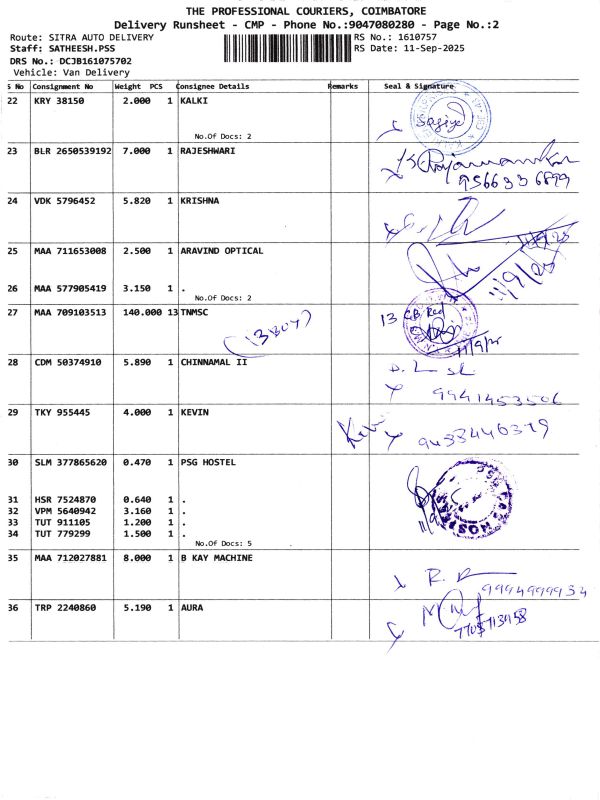 THE PROFESSIONAL COURIERS, COIMBATORE
Delivery Runsheet - CMP - Phone No.:9047080280 - Page No.:2
Route: SITRA AUTO DELIVERY RS No.: 1610757
Staff: SATHEESH.PSS RS Date: 11-Sep-2025
DRS No.: DCJB161075702
Vehicle: Van Delivery
S No Consignment No Weight PCS Consignee Details Remarks Seal & Signature
22 KRY 38150 2.000 1 KALKI
No.Of Docs: 2
23 BLR 2650539192 7.000 1 RAJESHWARI
956633 6899
24 VDK 5796452 5.820 1 KRISHNA
25 MAA 711653008 2.500 1 ARAVIND OPTICAL
11/9/25
26 MAA 577905419 3.150 1 .
No.Of Docs: 2
27 MAA 709103513 140.000 13 TNMSC
(13 BOX) 13 CB Red
11/9/25
28 CDM 50374910 5.890 1 CHINNAMAL II
9941453506
29 TKY 955445 4.000 1 KEVIN
9438446379
30 SLM 377865620 0.470 1 PSG HOSTEL
31 HSR 7524870 0.640 1 .
32 VPM 5640942 3.160 1 .
33 TUT 911105 1.200 1 .
34 TUT 779299 1.500 1 .
No.Of Docs: 5
35 MAA 712027881 8.000 1 B KAY MACHINE
9994999934
36 TRP 2240860 5.190 1 AURA